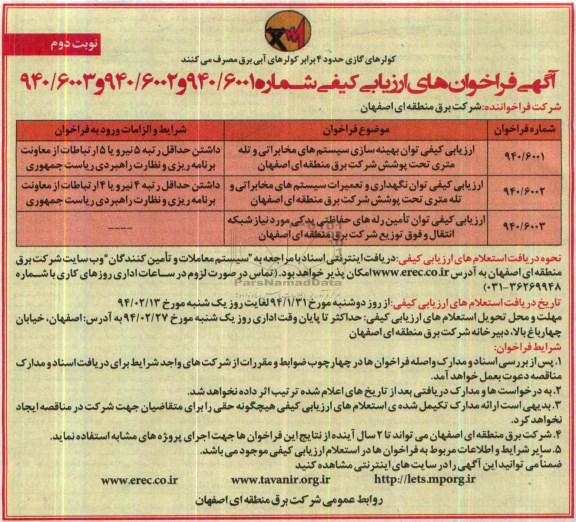 نوبت دوم
کولرهای گازی حدود ۴ برابر کولرهای آبی برق مصرف می کنند
آگهی فراخوان های ارزیابی کیفی شماره ۹۴۰/۶۰۰۱ و ۹۴۰/۶۰۰۲ و ۹۴۰/۶۰۰۳
شرکت فراخواننده: شرکت برق منطقه ای اصفهان
شماره فراخوان موضوع فراخوان شرایط و الزامات ورود به فراخوان
۹۴۰/۶۰۰۱ ارزیابی کیفی توان بهینه سازی سیستم های مخابراتی و تله متری تحت پوشش شرکت برق منطقه ای اصفهان داشتن حداقل رتبه ۵ نیرو یا ۵ ارتباطات از معاونت برنامه ریزی و نظارت راهبردی ریاست جمهوری
۹۴۰/۶۰۰۲ ارزیابی کیفی توان نگهداری و تعمیرات سیستم های مخابراتی و تله متری تحت پوشش شرکت برق منطقه ای اصفهان داشتن حداقل رتبه ۴ نیرو یا ۴ ارتباطات از معاونت برنامه ریزی و نظارت راهبردی ریاست جمهوری
۹۴۰/۶۰۰۳ ارزیابی کیفی توان تأمین رله های حفاظتی یدکی مورد نیاز شبکه انتقال و فوق توزیع شرکت برق منطقه ای اصفهان ----
نحوه دریافت استعلام های ارزیابی کیفی: دریافت اینترنتی اسناد با مراجعه به "سیستم معاملات و تأمین کنندگان" وب سایت شرکت برق
منطقه ای اصفهان به آدرس www.erec.co.ir امکان پذیر خواهد بود. (تماس در صورت لزوم در ساعات اداری روزهای کاری با شماره
۳۶۲۶۹۹۴۸-۰۳۱)
ParsNamadData
تاریخ دریافت استعلام های ارزیابی کیفی: از روز دوشنبه مورخ ۹۴/۱/۳۱ لغایت روز یک شنبه مورخ ۹۴/۰۲/۱۳
مهلت و محل تحویل استعلام های ارزیابی کیفی: حداکثر تا پایان وقت اداری روز یک شنبه مورخ ۹۴/۰۲/۲۷ به آدرس: اصفهان، خیابان
چهارباغ بالا، دبیرخانه شرکت برق منطقه ای اصفهان
شرایط فراخوان:
۱. پس از بررسی اسناد و مدارک واصله فراخوان ها در چهارچوب ضوابط و مقررات از شرکت های واجد شرایط برای دریافت اسناد و مدارک
مناقصه دعوت بعمل خواهد آمد.
۲. به درخواست ها و مدارک دریافتی بعد از تاریخ های اعلام شده ترتیب اثر داده نخواهد شد.
۳. بدیهی است ارائه مدارک تکمیل شده ی استعلام های ارزیابی کیفی هیچگونه حقی را برای متقاضیان جهت شرکت در مناقصه ایجاد
نخواهد کرد.
۴. شرکت برق منطقه ای اصفهان می تواند تا ۲ سال آینده از نتایج این فراخوان ها جهت اجرای پروژه های مشابه استفاده نماید.
۵. سایر شرایط و اطلاعات مربوط به فراخوان ها در استعلام ارزیابی کیفی موجود می باشد.
ضمناً می توانید این آگهی را در سایت های اینترنتی مشاهده کنید
http://lets.mporg.ir www.tavanir.org.ir www.erec.co.ir
روابط عمومی شرکت برق منطقه ای اصفهان